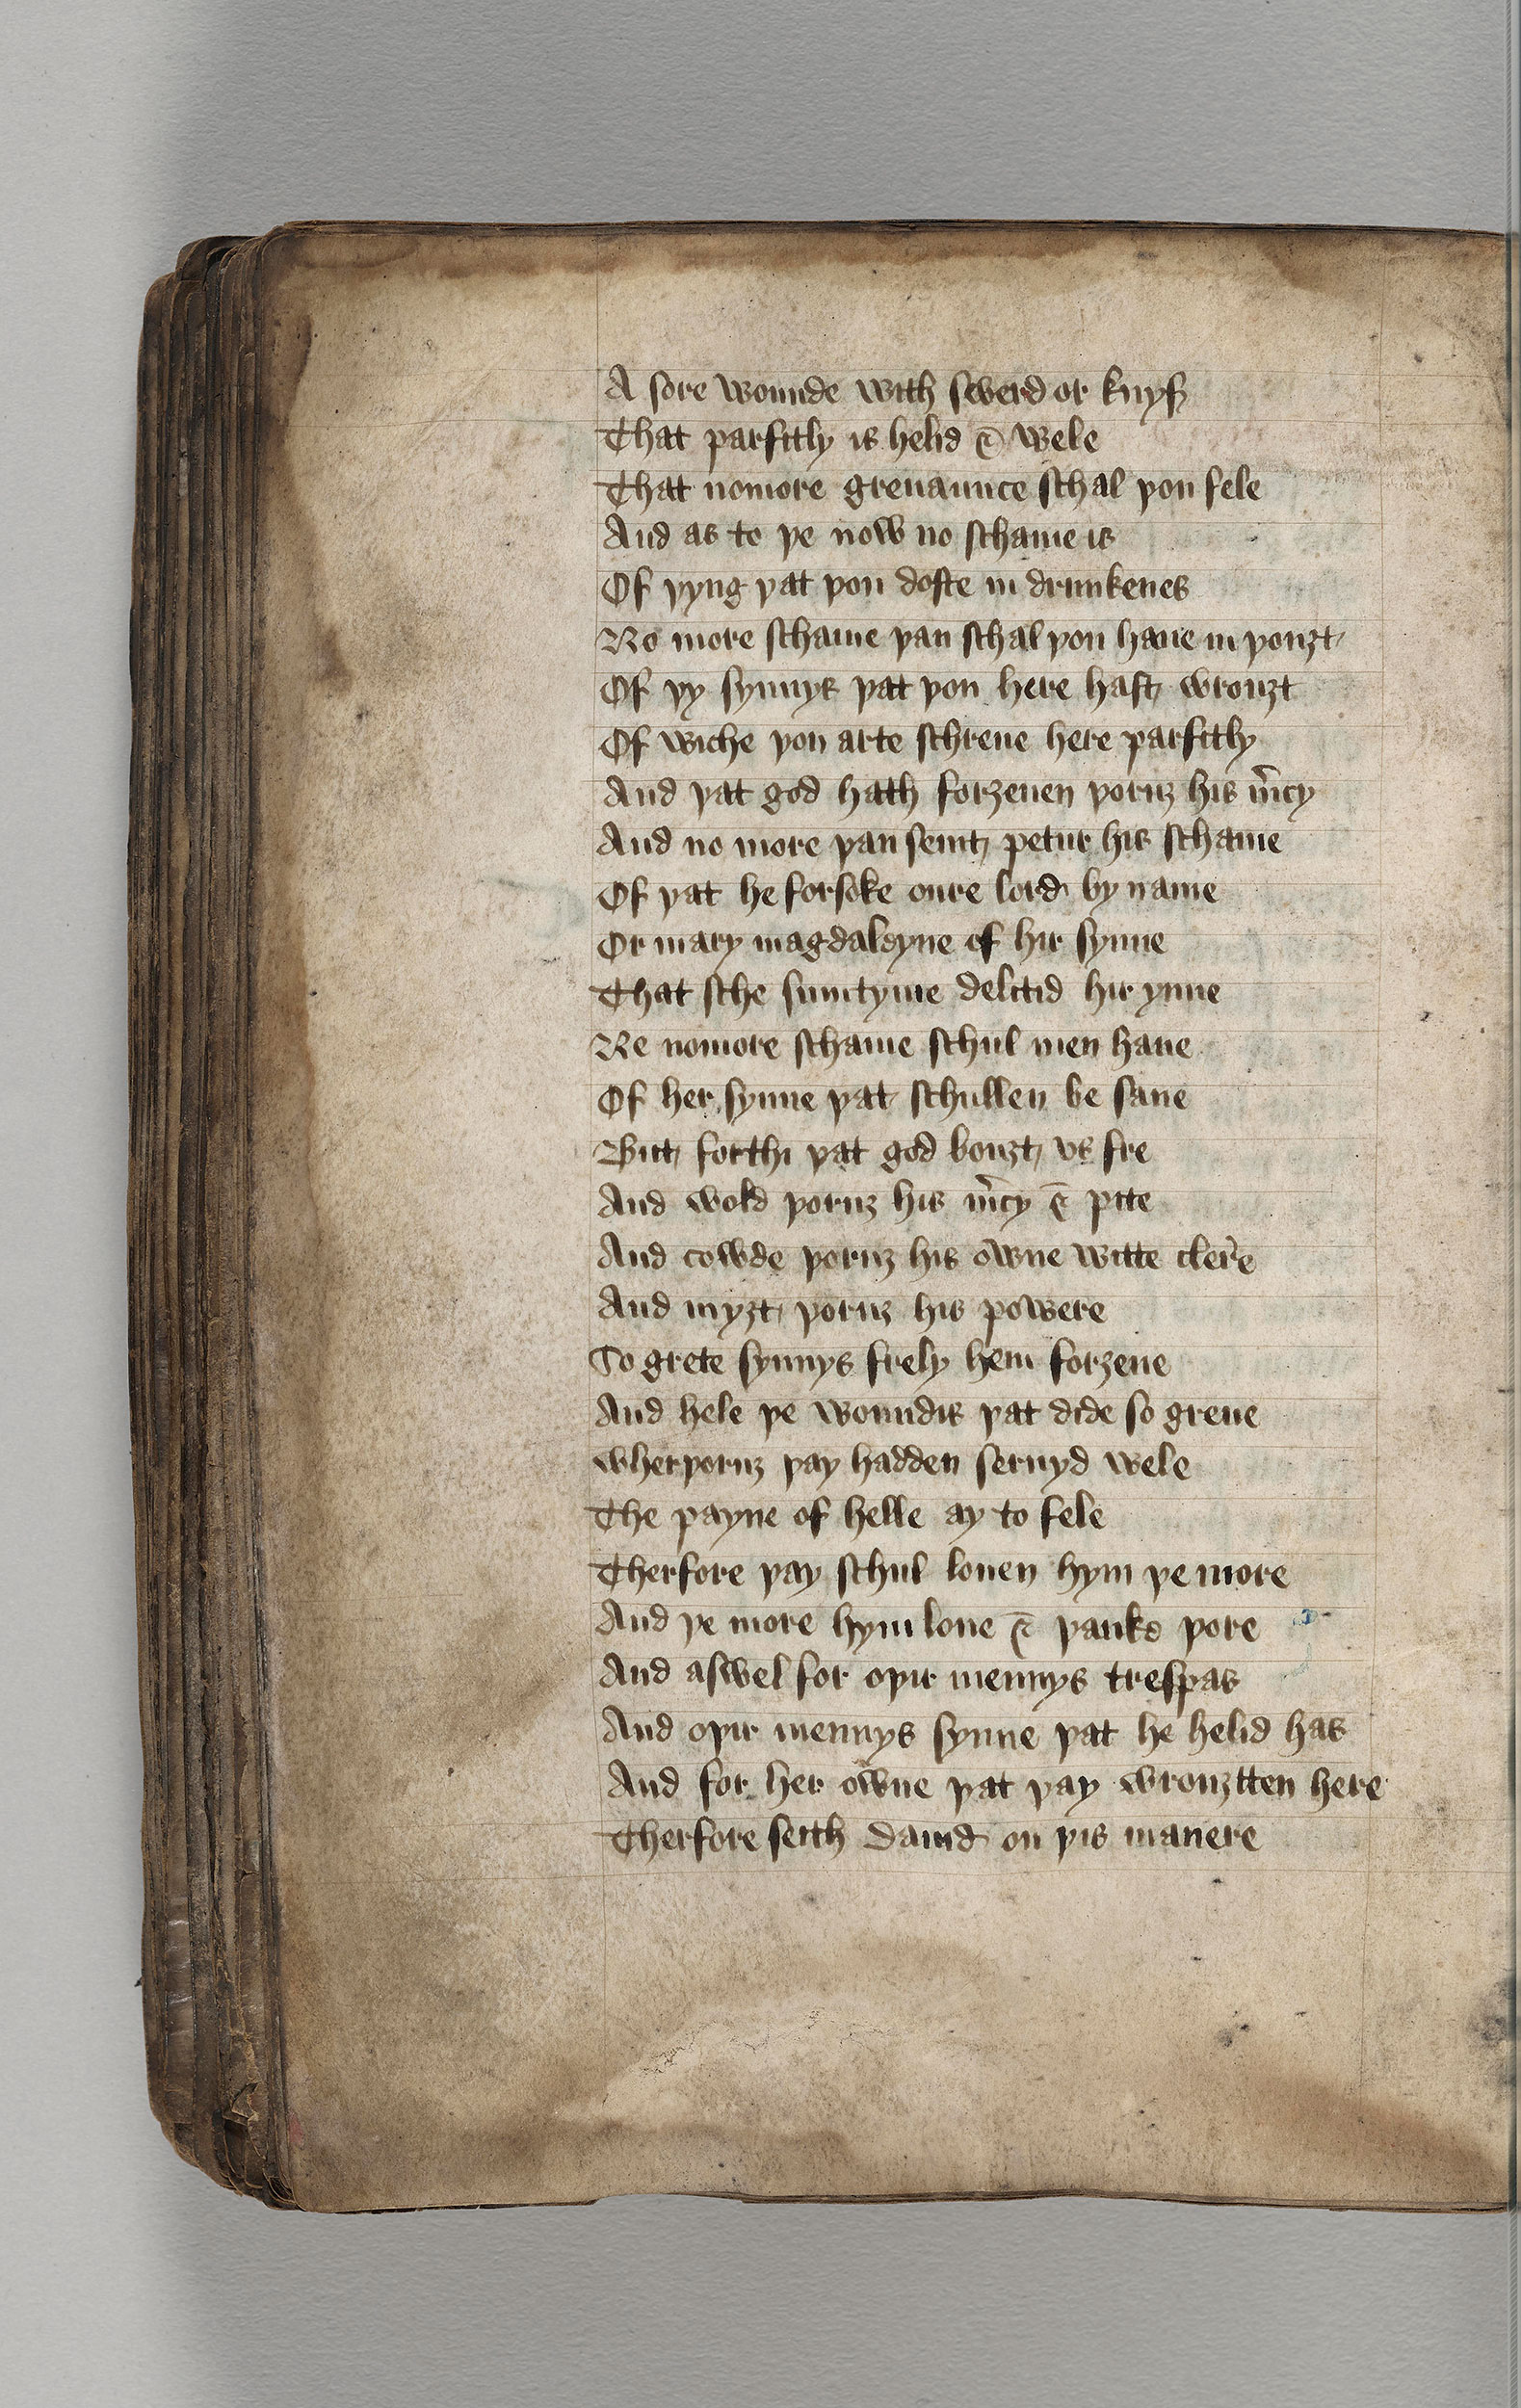 A sore wounde with swerd or knyf
That parfitly is helid & wele
That nomore greuaunce schal þou fele
And as to þe now no schame is
Of þyng þat þou doste in drunkenes
No more schame þan schal þou haue in þouȝt
Of þy synnys þat þou here hast wrouȝt
Of wiche þou arte schreue here parfitly
And þat god hath forȝeuen þoruȝ his m̃cy
And no more þan seint petur his schame
Of þat he forsoke oure lord by name
Or mary magdaleyne of hir synne
That sche sumtyme delitid hir ynne
Ne nomore schame schul men haue
Of her synne þat schullen be saue
But forthi þat god bouȝt vs fre
And wold þoruȝ his m̃cy & pite
And cowde þoruȝ his owne witte clere
And myȝt þoruȝ his powere
So grete synnys frely hem forȝeue
And hele þe woundis þat dide so greue
wherþoruȝ þay hadden seruyd wele
The payne of helle ay to fele
Therfore þay schul louen hym þe more
And þe more hym loue & þanke þore
And aswel for oþir mennys trespas
And oþir mennys synne þat he helid has
And for her owne þat þay wrouȝtten here
Therfore seith dauid on þis manere